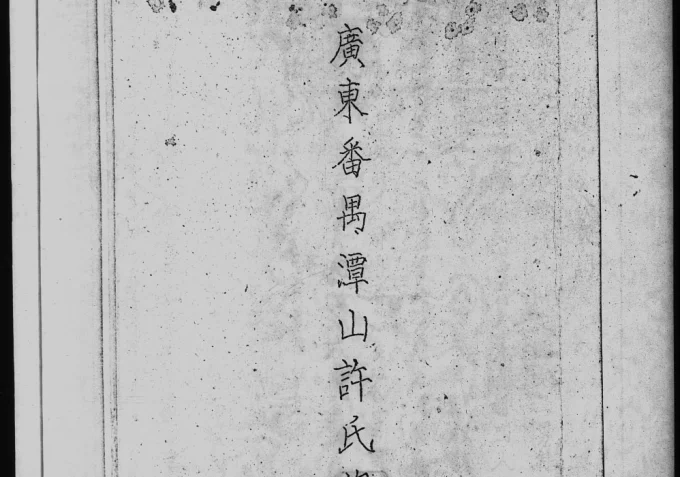 廣東番禺潭山許氏